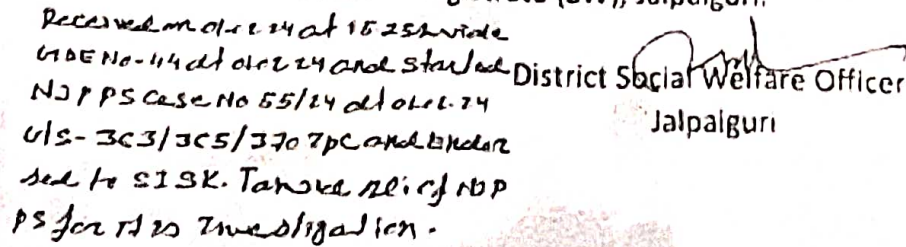 Jalpaiguri.
Received on 01.02.24 at 15.25h vide
GDE No-44 dt 01.02.24 and started
NJP PS Case No 55/24 dt 01.02.24
U/S- 363/365/370 IPC and Endor
sed to SI SK. of NJP
PS for its Investigation.
District Social Welfare Officer
Jalpaiguri